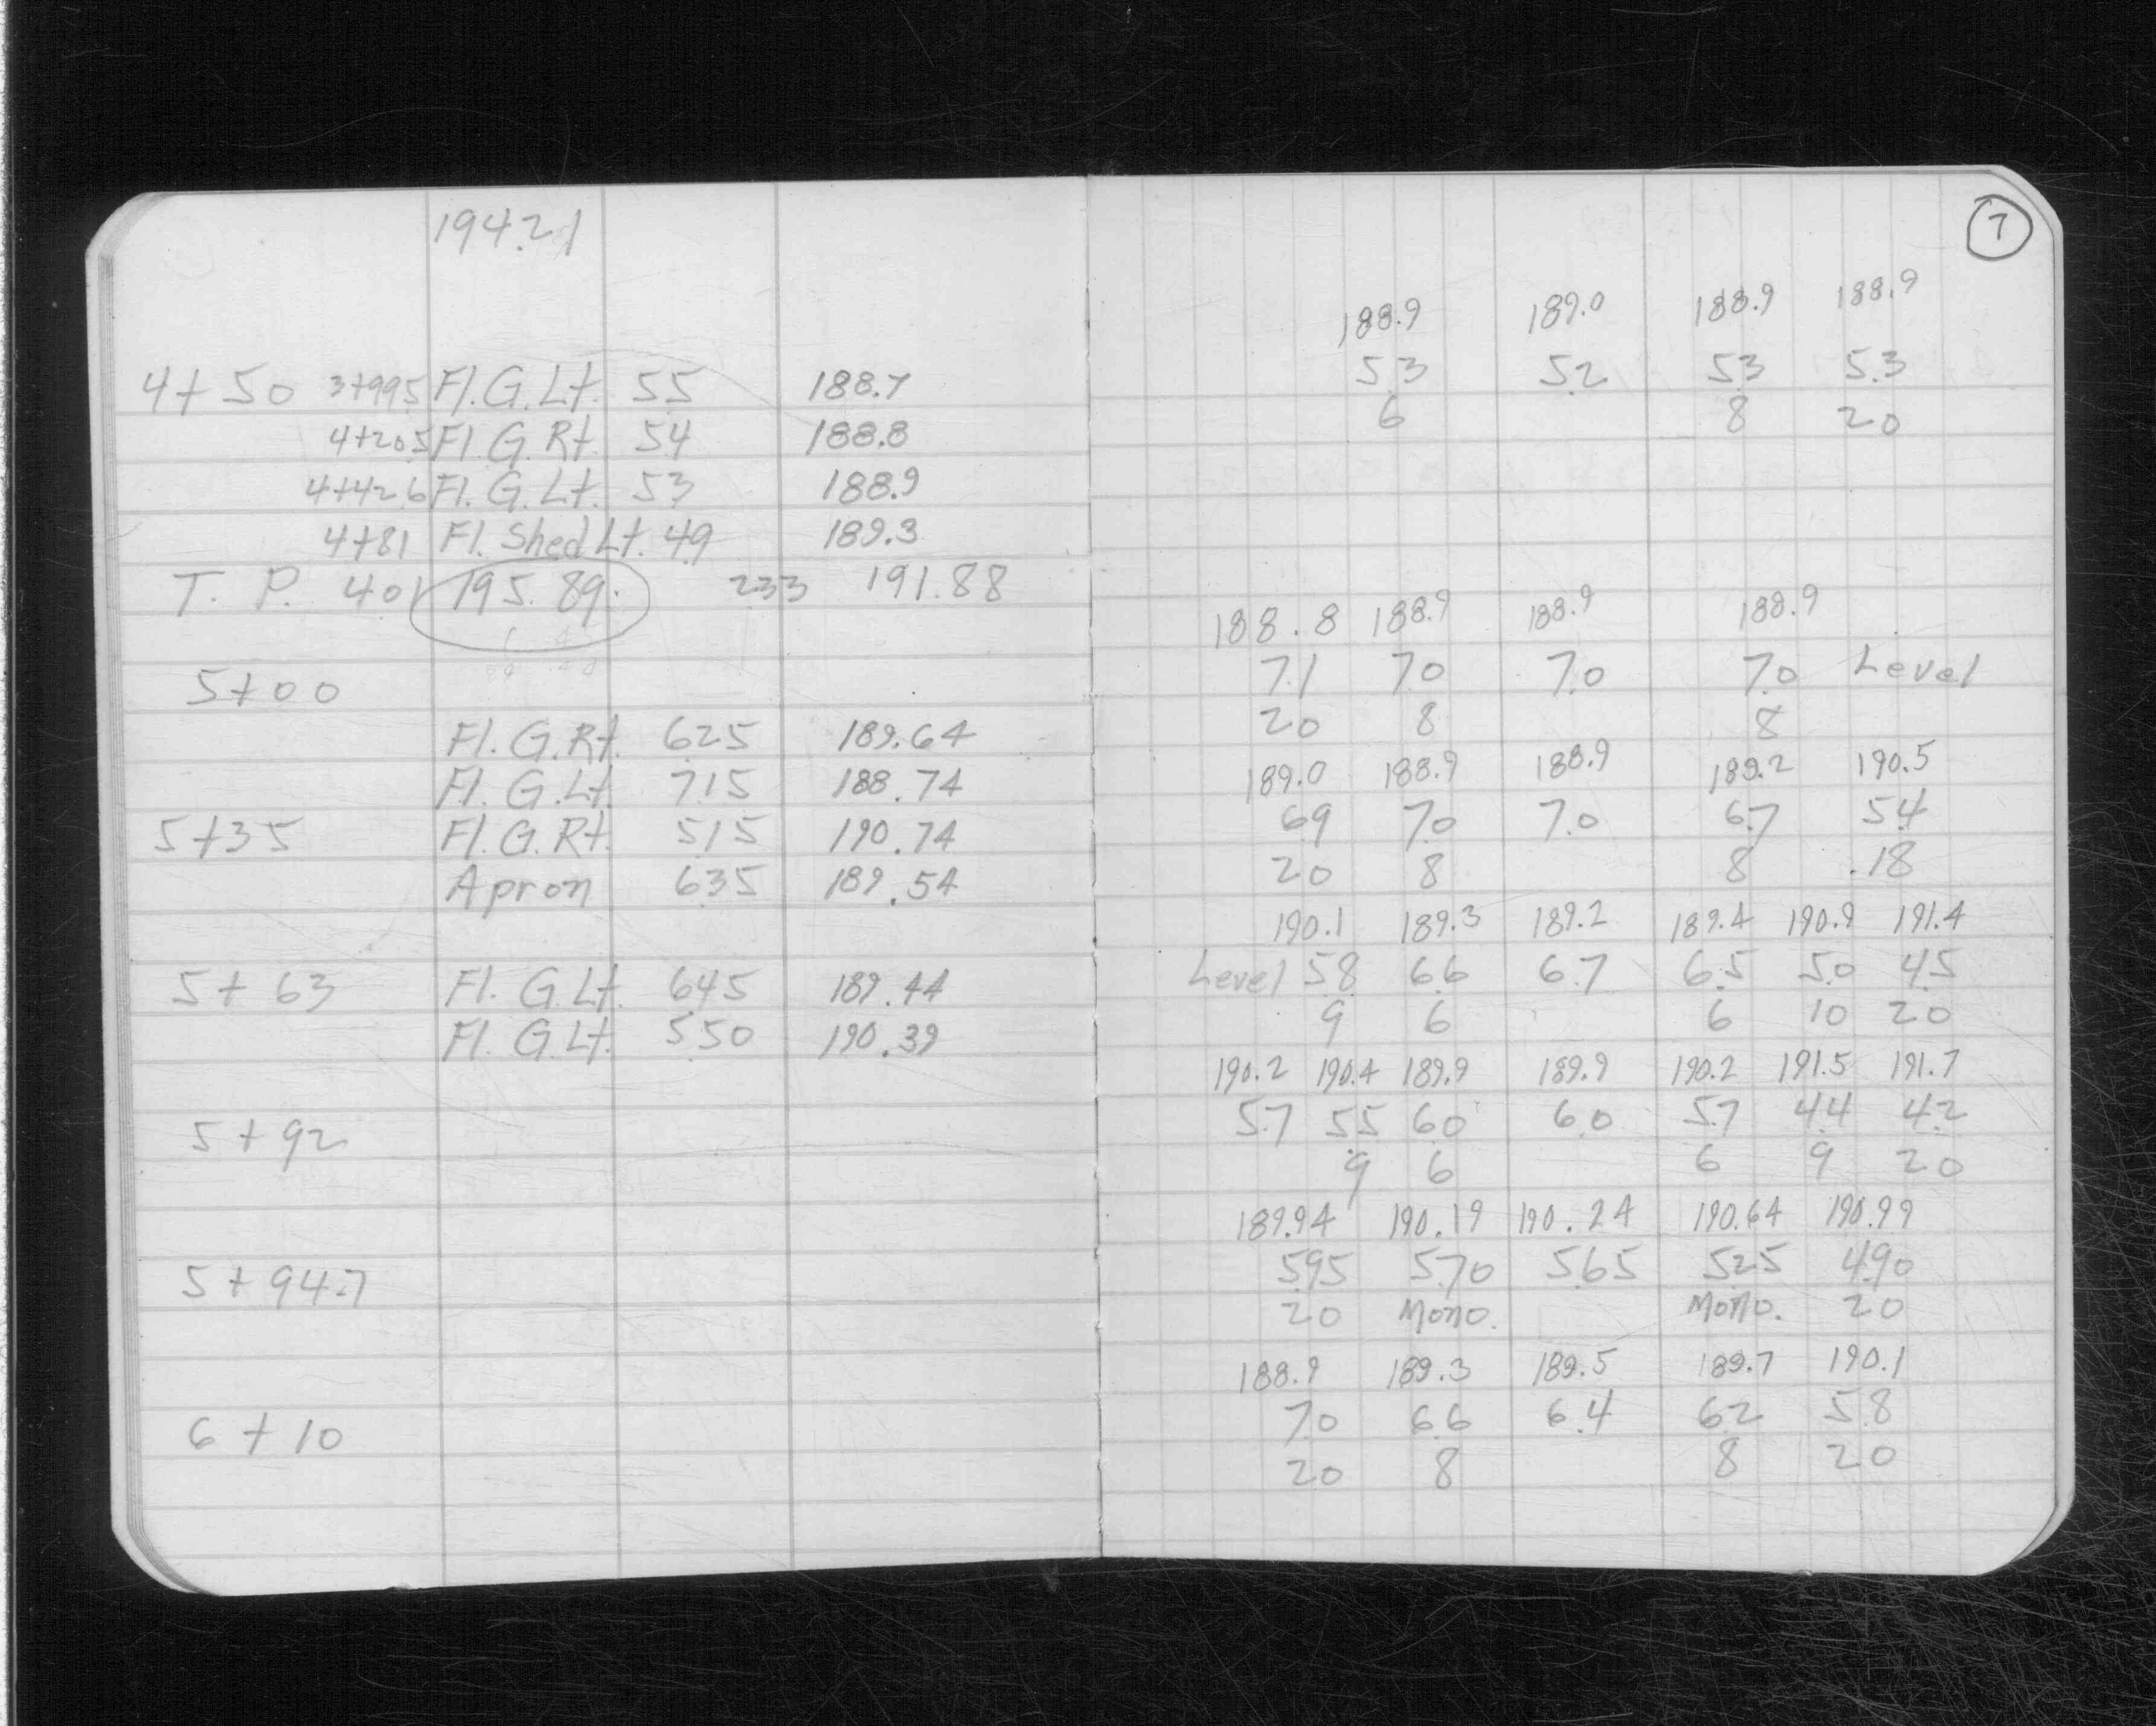 194.21
4+50 3+99.5 Fl. G. Lt. 5.5 188.7
4+20.5 Fl. G. Rt. 5.4 188.8
4+42.6 Fl. G. Lt. 5.3 188.9
4+81 Fl. Shed Lt. 4.9 189.3
T. P. 4.01 195.89 2.33 191.88
5+00
Fl. G. Rt. 6.25 189.64
Fl. G. Lt. 7.15 188.74
5+35 Fl. G. Rt. 5.15 190.74
Apron 6.35 189.54
5+63 Fl. G. Lt. 6.45 189.44
Fl. G. Lt. 5.50 190.39
5+92
5+94.7
6+10
7
188.9 189.0 188.9 188.9
5.3 5.2 5.3 5.3
6 8 20
188.8 188.9 188.9 188.9
7.1 7.0 7.0 7.0 Level
20 8 8
189.0 188.9 188.9 189.2 190.5
6.9 7.0 7.0 6.7 5.4
20 8 8 18
190.1 189.3 189.2 189.4 190.9 191.4
Level 5.8 6.6 6.7 6.5 5.0 4.5
9 6 6 10 20
190.2 190.4 189.9 189.9 190.2 191.5 191.7
5.7 5.5 6.0 6.0 5.7 4.4 4.2
9 6 6 9 20
189.94 190.19 190.24 190.64 190.99
5.95 5.70 5.65 5.25 4.90
20 Mono. Mono. 20
188.9 189.3 189.5 189.7 190.1
7.0 6.6 6.4 6.2 5.8
20 8 8 20